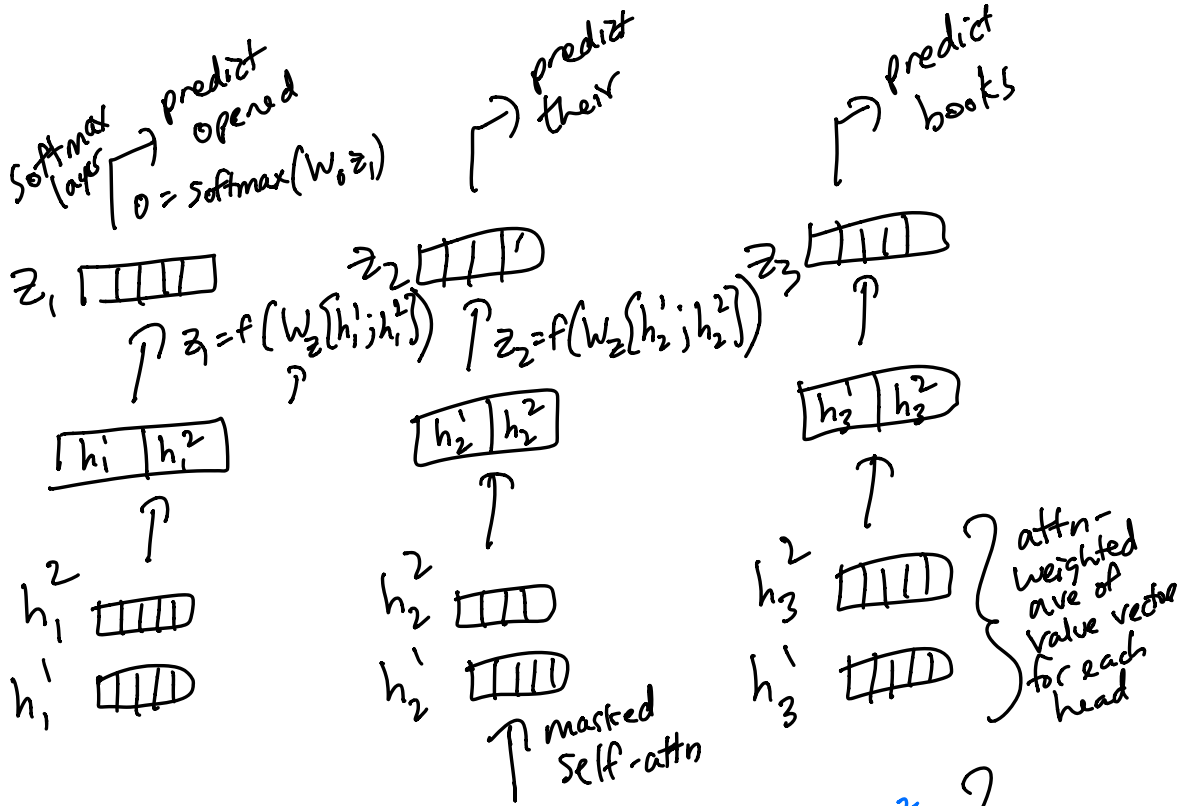 softmax
layer
predict
opened
o = softmax(W₀z₁)
predict
their
predict
books
z₁
z₂
z₃
z₁ = f(W_z[h₁¹; h₁²])
z₂ = f(W_z[h₂¹; h₂²])
h₁¹ h₁²
h₂¹ h₂²
h₃¹ h₃²
h₁²
h₂²
h₃²
h₁¹
h₂¹
h₃¹
attn-
weighted
ave of
value vector
for each
head
masked
self-attn